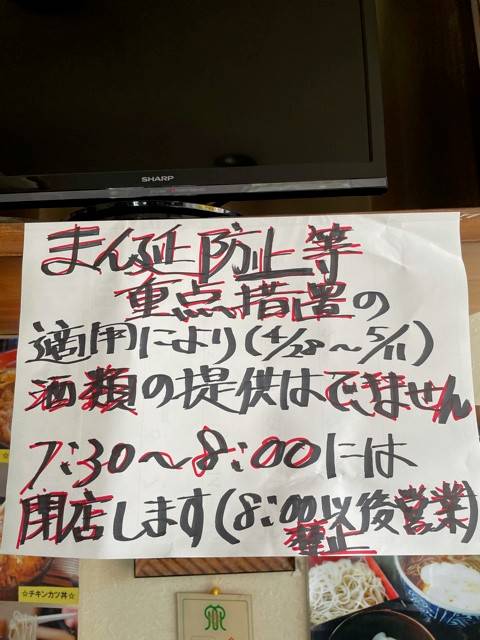 SHARP
まん延防止等
重点措置の
適用により(4/28～5/11)
酒類の提供はできません
7:30～8:00には
閉店します(8:00以後営業
禁止)
☆チキンカツ丼☆